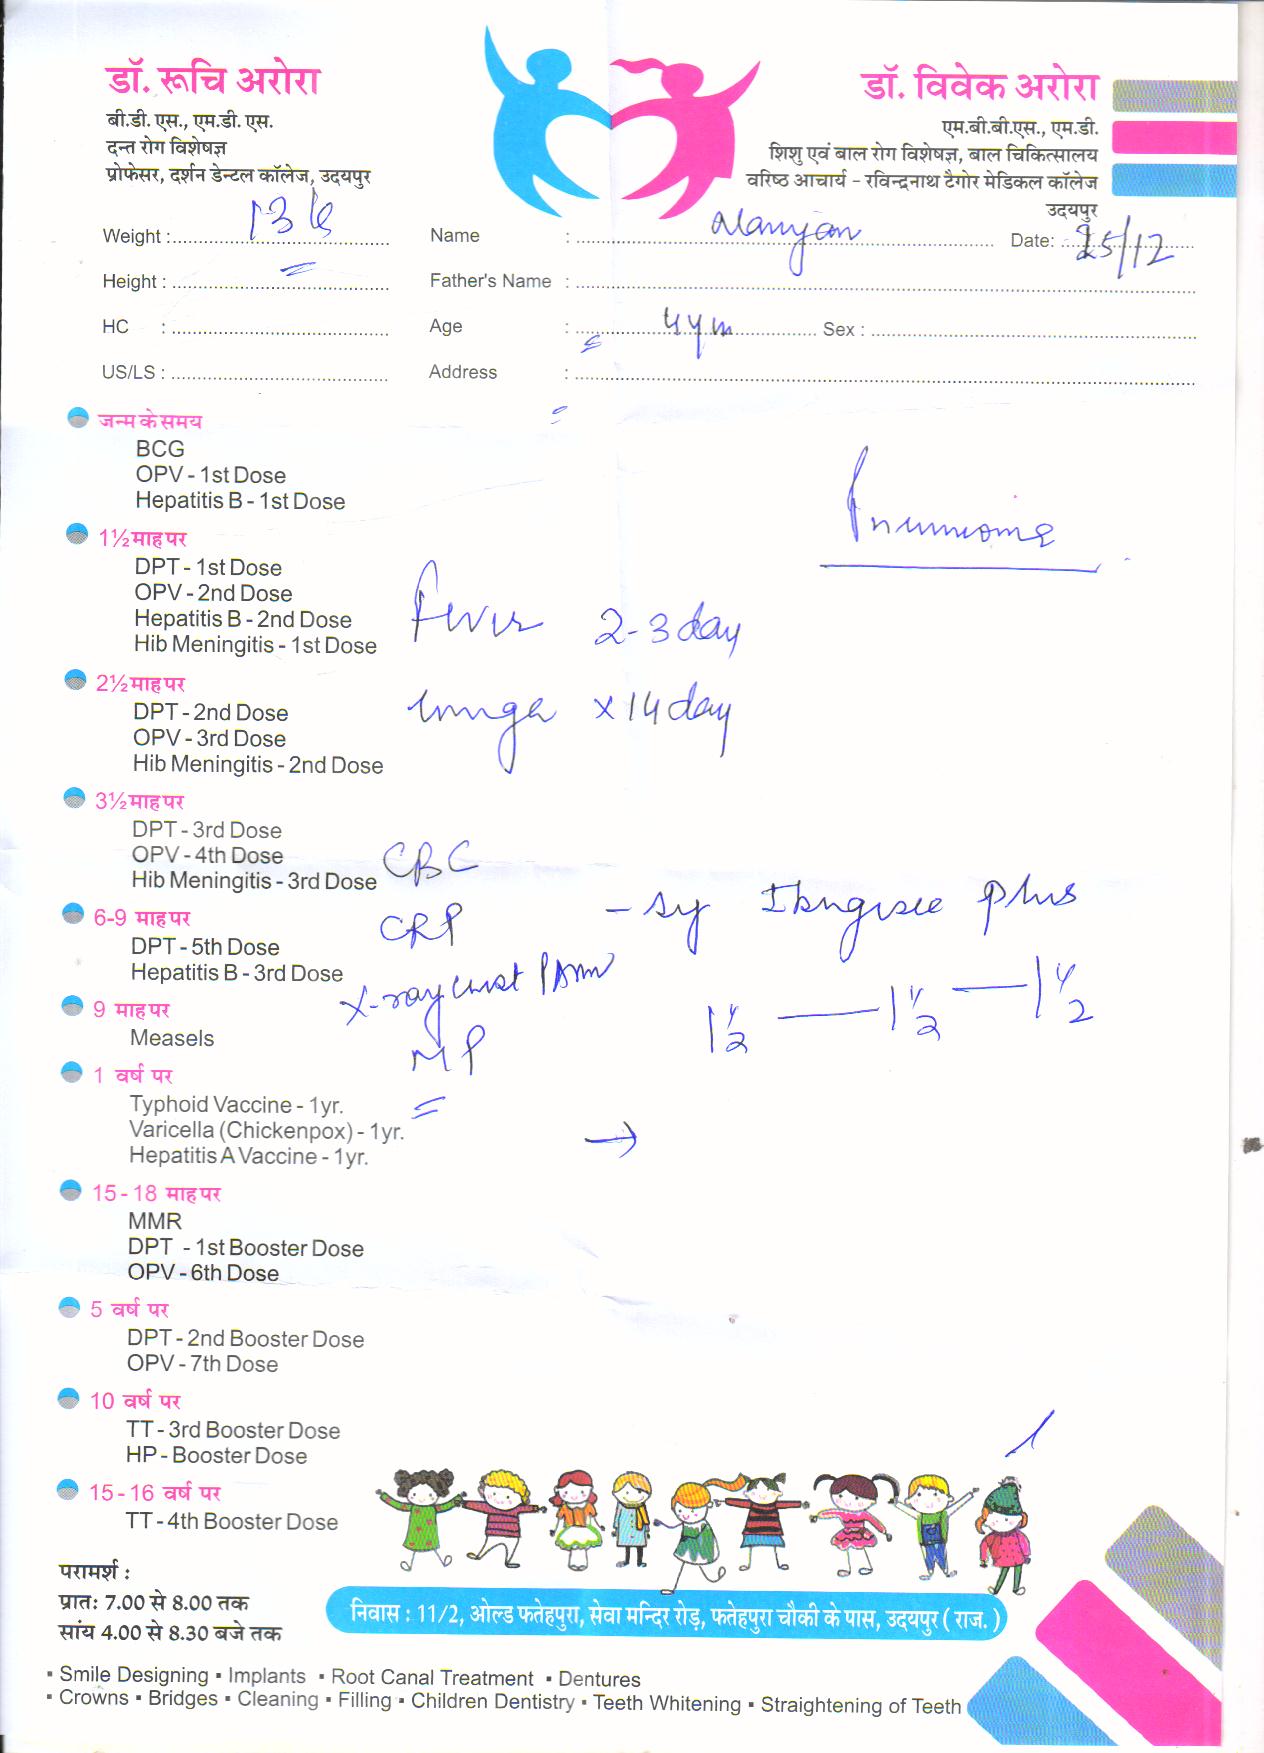 डॉ. रूचि अरोरा
बी.डी. एस., एम.डी. एस.
दन्त रोग विशेषज्ञ
प्रोफेसर, दर्शन डेन्टल कॉलेज, उदयपुर
डॉ. विवेक अरोरा
एम.बी.बी.एस., एम.डी.
शिशु एवं बाल रोग विशेषज्ञ, बाल चिकित्सालय
वरिष्ठ आचार्य - रविन्द्रनाथ टैगोर मेडिकल कॉलेज
उदयपुर
Weight : 13 Name : Date: 25/12
Height : Father's Name :
HC : Age : Sex :
US/LS : Address :
जन्म के समय
BCG
OPV - 1st Dose
Hepatitis B - 1st Dose
1½ माह पर
DPT - 1st Dose
OPV - 2nd Dose
Hepatitis B - 2nd Dose
Hib Meningitis - 1st Dose
2½ माह पर
DPT - 2nd Dose
OPV - 3rd Dose
Hib Meningitis - 2nd Dose
3½ माह पर
DPT - 3rd Dose
OPV - 4th Dose
Hib Meningitis - 3rd Dose
6-9 माह पर
DPT - 5th Dose
Hepatitis B - 3rd Dose
9 माह पर
Measels
1 वर्ष पर
Typhoid Vaccine - 1yr.
Varicella (Chickenpox) - 1yr.
Hepatitis A Vaccine - 1yr.
15 - 18 माह पर
MMR
DPT - 1st Booster Dose
OPV - 6th Dose
5 वर्ष पर
DPT - 2nd Booster Dose
OPV - 7th Dose
10 वर्ष पर
TT - 3rd Booster Dose
HP - Booster Dose
15 - 16 वर्ष पर
TT - 4th Booster Dose
Pneumonia
Fever 2-3 day
x 14 day
CBC
CRP
X-ray Chest
MP
- Sy Plus
1 1/2 — 1 1/2 — 1 1/2
परामर्श :
प्रातः 7.00 से 8.00 तक
सांय 4.00 से 8.30 बजे तक
निवास : 11/2, ओल्ड फतेहपुरा, सेवा मन्दिर रोड़, फतेहपुरा चौकी के पास, उदयपुर ( राज. )
▪ Smile Designing ▪ Implants ▪ Root Canal Treatment ▪ Dentures
▪ Crowns ▪ Bridges ▪ Cleaning ▪ Filling ▪ Children Dentistry ▪ Teeth Whitening ▪ Straightening of Teeth